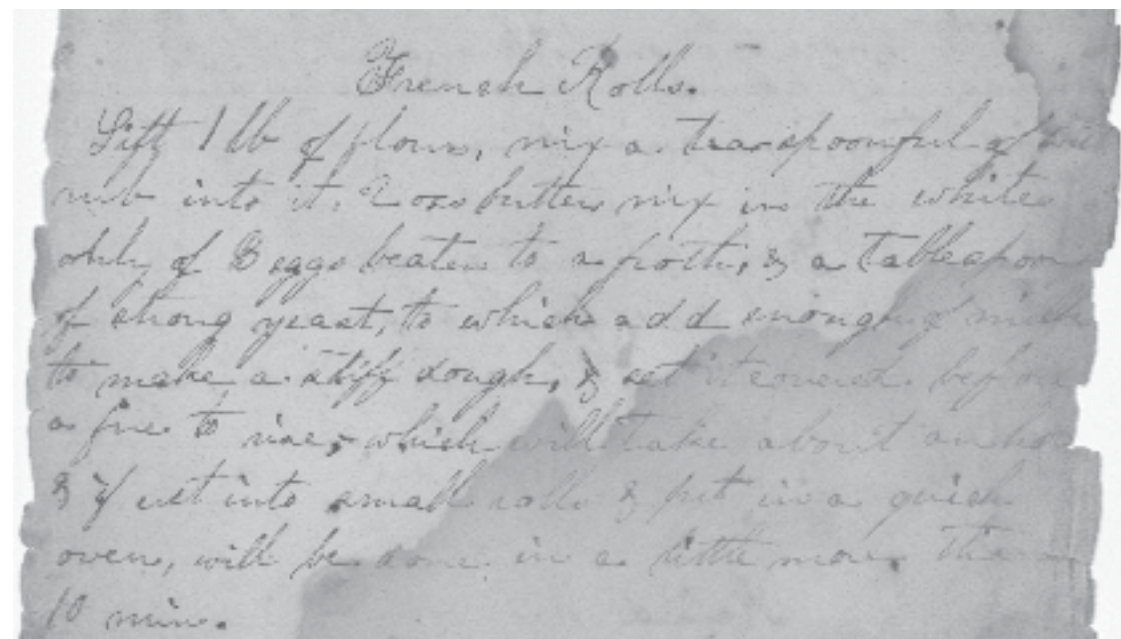 French Rolls.
Sift 1 lb of flour, mix a teaspoonful of
rub into it. 2 ozs butter mix in the white
only of 3 eggs beaten to a froth, & a tablespoon
of strong yeast, to which add enough of milk
to make a stiff dough, & set it covered before
a fire to rise, which will take about an hour
& if cut into small rolls & put in a quick
oven, will be done in a little more than
10 min.